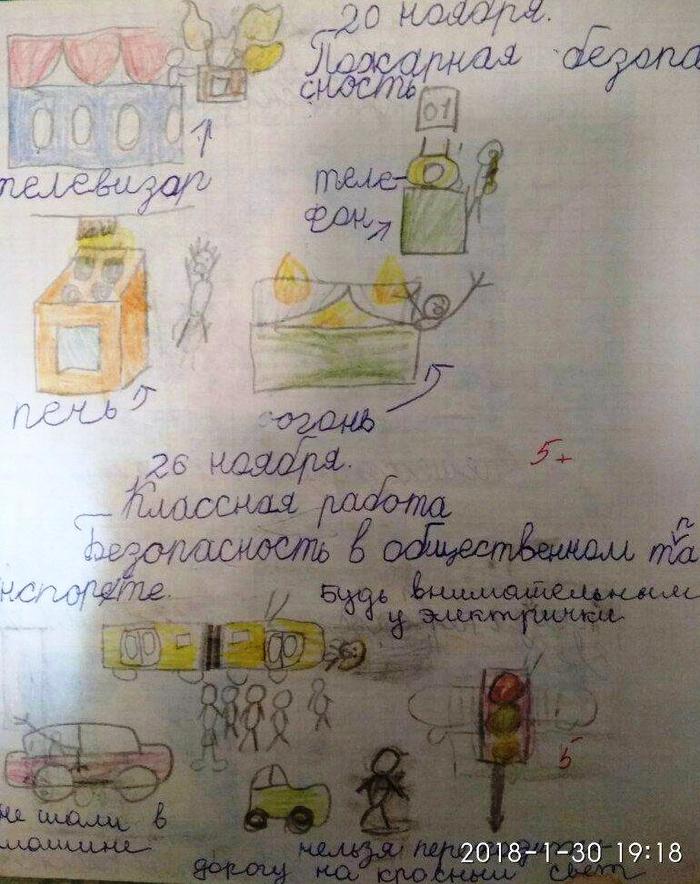 20 ноября.
Пожарная безопа
сность
01
телевизар
теле-
фон
печь
огонь
26 ноября.
5+
Классная работа
Безопасность в общественном тра
нспорте.
Будь внимательным
у электрички
5
не шали в
машине
нельзя
дорогу на красный свет
2018-1-30 19:18